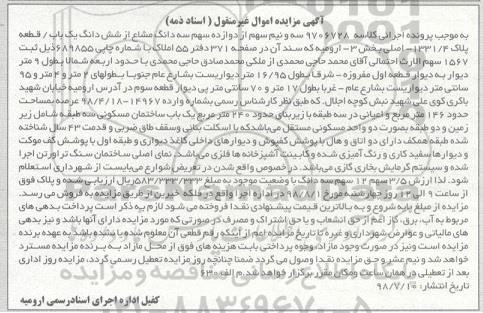 آگهی مزایده اموال غیرمنقول ( اسناد ذمه)
به موجب پرونده اجرائی کلاسه ۹۷۰۶۷۲۸ سه و نیم سهم از دوازده سهم سه دانگ مشاع از شش دانگ یک باب / قطعه
پلاک ۱۳۳۱/۴- اصلی بخش ۳- ارومیه که سند آن در صفحه ۳۷۱ دفتر ۵۵ املاک با شماره چاپی ۶۸۹۸۵۵ ذیل ثبت
۱۵۶۷ سهم الارث احتمالی آقای محمد حاجی محمدی از ملکی محمدصادق حاجی محمدی با حدود اربعه شمالا بطول ۹ متر
دیوار به دیوار قطعه اول مفروزه – شرقا بطول ۱۶/۹۵ متر دیواریست بشارع عام جنوبا بطولهای ۲ متر و ۴ متر و ۹۵
سانتی متر دیواریست بشارع عام – غربا بطول ۱۷ متر و ۷۰ سانتی متر پی دیوار قطعه سوم در آدرس ارومیه خیابان شهید
باکری کوی علی شهید نبش کوچه اجلال. که طبق نظر کارشناس رسمی بشماره وارده ۱۴۹۶۷-۹۸/۴/۱۸ عرصه بمساحت
حدود ۱۴۶ متر مربع و اعیانی در سه طبقه با زیربنای حدود ۲۴۰ متر مربع یک باب ساختمان مسکونی سه طبقه شامل زیر
زمین و دو طبقه بصورت دو واحد مسکونی مستقل می‌باشد که با اسکلت بنایی وسقف طاق ضربی و قدمت ۴۳ سال شناخته
شده طبقه همکف دارای دو اتاق و هال با پوشش کفپوش و دیوارهای داخلی کاغذ دیواری و طبقه اول با پوشش کف موکت
و دیوارها سفید کاری و رنگ آمیزی شده و کابینت آشپزخانه ها فلزی می‌باشد. نمای اصلی ساختمان سنگ تراورتن اجرا
شده و سیستم گرمایش بخاری گازی می‌باشد. درخصوص واقع شدن در تعریض شوارع می‌بایست از شهرداری استعلام
شود. لذا ارزش ۳/۵ سهم از ۱۲ سهم سه دانگ با وضعیت موجود به مبلغ ۵۸۳/۳۳۳/۳۳۳ ریال ارزیابی شده و پلاک فوق
از ساعت ۹ الی ۱۲ روز چهارشنبه مورخ ۹۸/۸/۱ در اداره اجرا واقع در از طریق مزایده به فروش می رسد.
مزایده از مبلغ پایه شروع و به بالاترین قیمت پیشنهادی نقدا فروخته می شود لازم به ذکر است پرداخت بدهی های
مربوط به آب، برق، گاز اعم از حق انشعاب و یا حق اشتراک و مصرف در صورتی که مورد مزایده دارای آنها باشد و نیز بدهی
های مالیاتی و عوارض شهرداری و غیره تا تاریخ مزایده اعم از اینکه رقم قطعی آن معلوم شده یا نشده باشد به عهده برنده
مزایده است ونیز در صورت وجود مازاد وجوه پرداختی بابت هزینه های فوق از محل مازاد به برنده مزایده مسترد
خواهد شد و نیم عشر و حق مزایده نقدا وصول می گردد ضمنا چنانچه روز مزایده تعطیل رسمی گردد، مزایده روز اداری
بعد از تعطیلی در همان ساعت ومکان مقرر برگزار خواهد شد. م الف ۶۳۰
تاریخ انتشار: ۹۸/۷/۱۰
کفیل اداره اجرای اسناد رسمی ارومیه